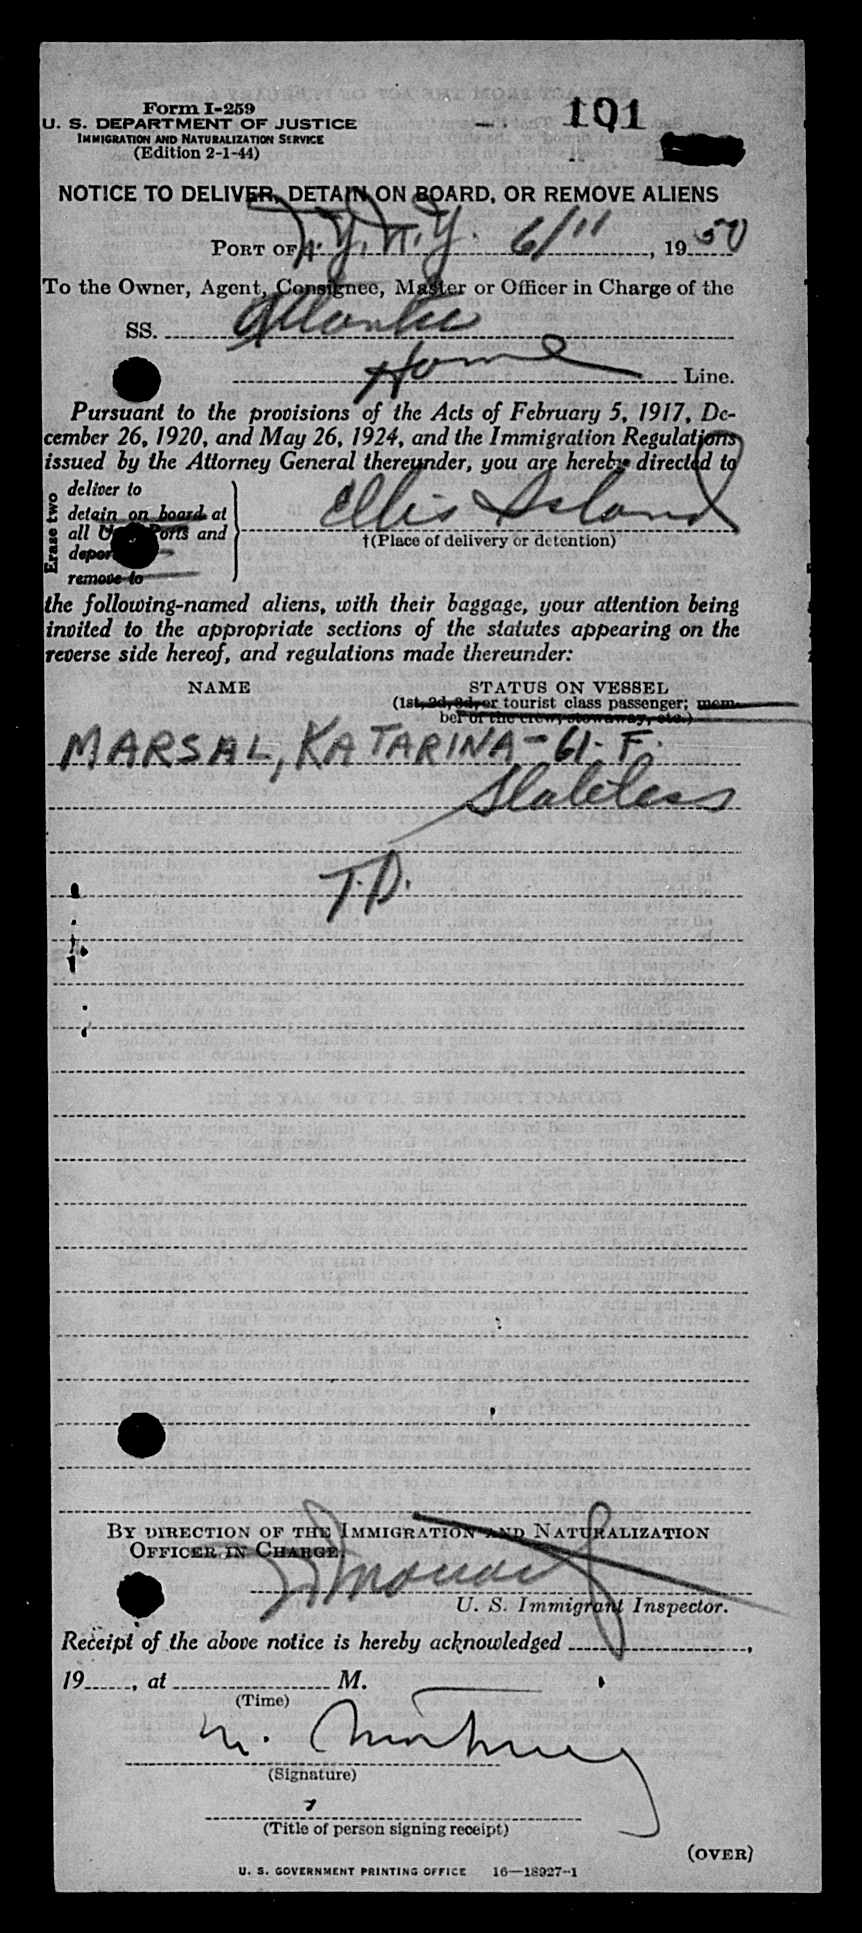 Form I-259
U. S. DEPARTMENT OF JUSTICE
IMMIGRATION AND NATURALIZATION SERVICE
(Edition 2-1-44)
101
NOTICE TO DELIVER, DETAIN ON BOARD, OR REMOVE ALIENS
PORT OF N.Y. 6/11, 1950
To the Owner, Agent, Consignee, Master or Officer in Charge of the
SS. Atlantic
Home Line.
Pursuant to the provisions of the Acts of February 5, 1917, De-
cember 26, 1920, and May 26, 1924, and the Immigration Regulations
issued by the Attorney General thereunder, you are hereby directed to
Erase two
deliver to
detain on board at
all U. S. Ports and
deport
remove to
Ellis Island
†(Place of delivery or detention)
the following-named aliens, with their baggage, your attention being
invited to the appropriate sections of the statutes appearing on the
reverse side hereof, and regulations made thereunder:
NAME STATUS ON VESSEL
(1st, 2d, 3d, or tourist class passenger; mem-
ber of the crew, stowaway, etc.)
MARSAL, KATARINA - 61 - F.
Stateless
T.D.
BY DIRECTION OF THE IMMIGRATION AND NATURALIZATION
OFFICER IN CHARGE.
U. S. Immigrant Inspector.
Receipt of the above notice is hereby acknowledged
19, at M.
(Time)
M.
(Signature)
(Title of person signing receipt)
(OVER)
U. S. GOVERNMENT PRINTING OFFICE 16—18927-1